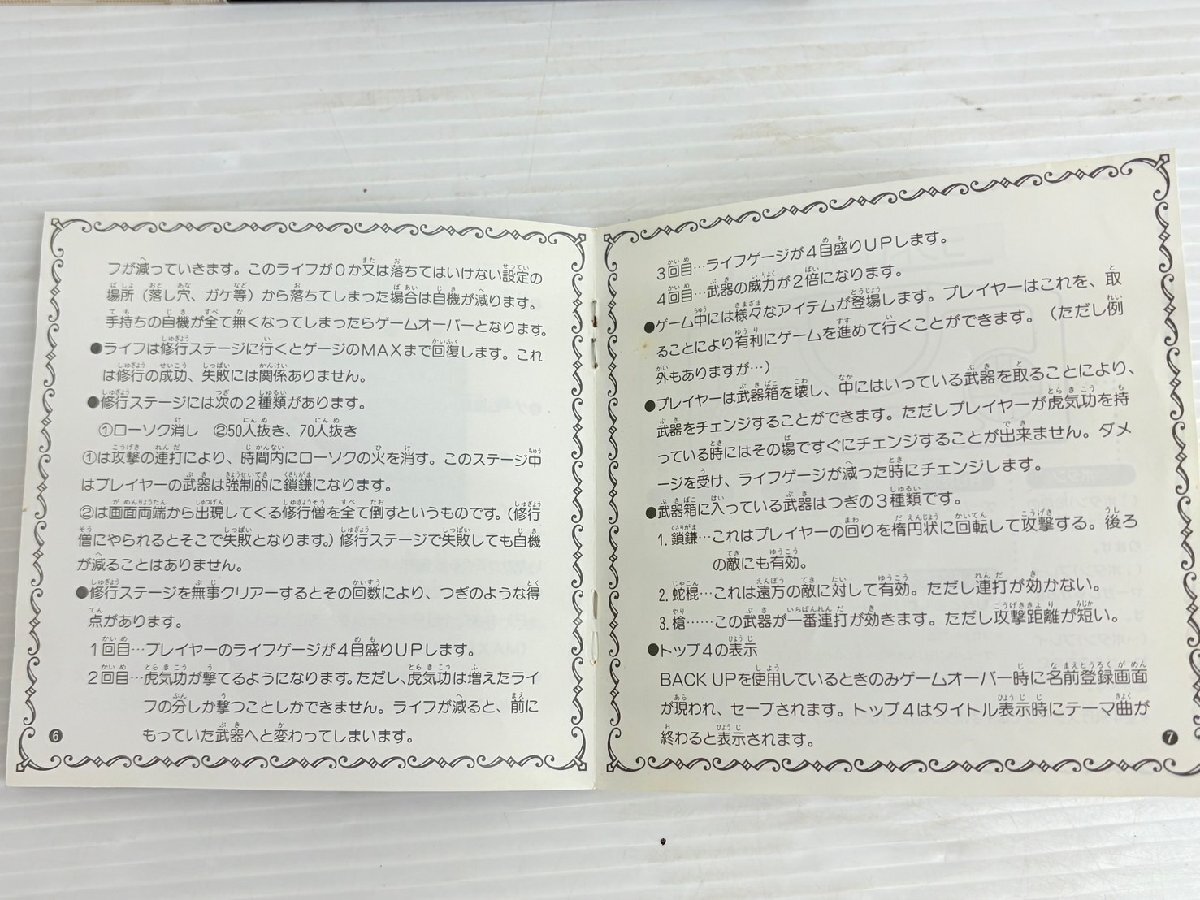 フが減っていきます。このライフが0か又は落ちてはいけない設定の
場所（落し穴、ガケ等）から落ちてしまった場合は自機が減ります。
手持ちの自機が全て無くなってしまったらゲームオーバーとなります。
●ライフは修行ステージに行くとゲージのMAXまで回復します。これ
は修行の成功、失敗には関係ありません。
●修行ステージには次の2種類があります。
①ローソク消し　②50人抜き、70人抜き
①は攻撃の連打により、時間内にローソクの火を消す。このステージ中
はプレイヤーの武器は強制的に鎖鎌になります。
②は画面両端から出現してくる修行僧を全て倒すというものです。（修行
僧にやられるとそこで失敗となります。）修行ステージで失敗しても自機
が減ることはありません。
●修行ステージを無事クリアーするとその回数により、つぎのような得
点があります。
1回目…プレイヤーのライフゲージが4目盛りUPします。
2回目…虎気功が撃てるようになります。ただし、虎気功は増えたライ
フの分しか撃つことしかできません。ライフが減ると、前に
もっていた武器へと変わってしまいます。
6
3回目…ライフゲージが4目盛りUPします。
4回目…武器の威力が2倍になります。
●ゲーム中には様々なアイテムが登場します。プレイヤーはこれを、取
ることにより有利にゲームを進めて行くことができます。（ただし例
外もありますが…）
●プレイヤーは武器箱を壊し、中にはいっている武器を取ることにより、
武器をチェンジすることができます。ただしプレイヤーが虎気功を持
っている時にはその場ですぐにチェンジすることが出来ません。ダメ
ージを受け、ライフゲージが減った時にチェンジします。
●武器箱に入っている武器はつぎの3種類です。
1. 鎖鎌…これはプレイヤーの回りを楕円状に回転して攻撃する。後ろ
の敵にも有効。
2. 蛇棍…これは遠方の敵に対して有効。ただし連打が効かない。
3. 槍……この武器が一番連打が効きます。ただし攻撃距離が短い。
●トップ4の表示
BACK UPを使用しているときのみゲームオーバー時に名前登録画面
が現われ、セーブされます。トップ4はタイトル表示時にテーマ曲が
終わると表示されます。
7